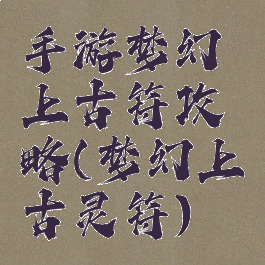 手游梦幻
上古符攻
略(梦幻上
古灵符)